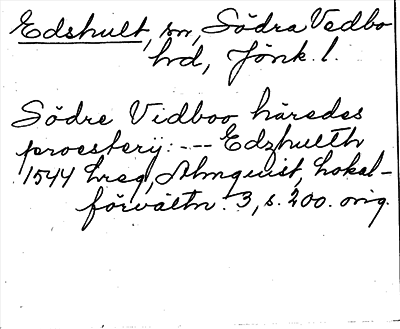 Edshult, sn, Södra Vedbo
hd, Jönk. l.
Södre Vidboo häredes
proesterij: --- Edzhullth
1544 hreg, Almquist, Lokal-
förvaltn. 3, s. 200. orig.